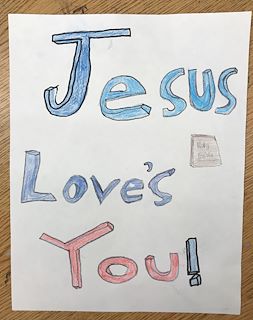 Jesus
Holy
Bible
Love's
You!